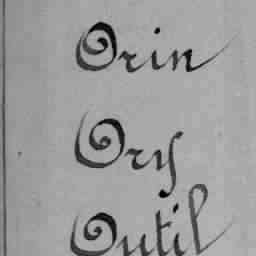 Orin
Ory
Outil